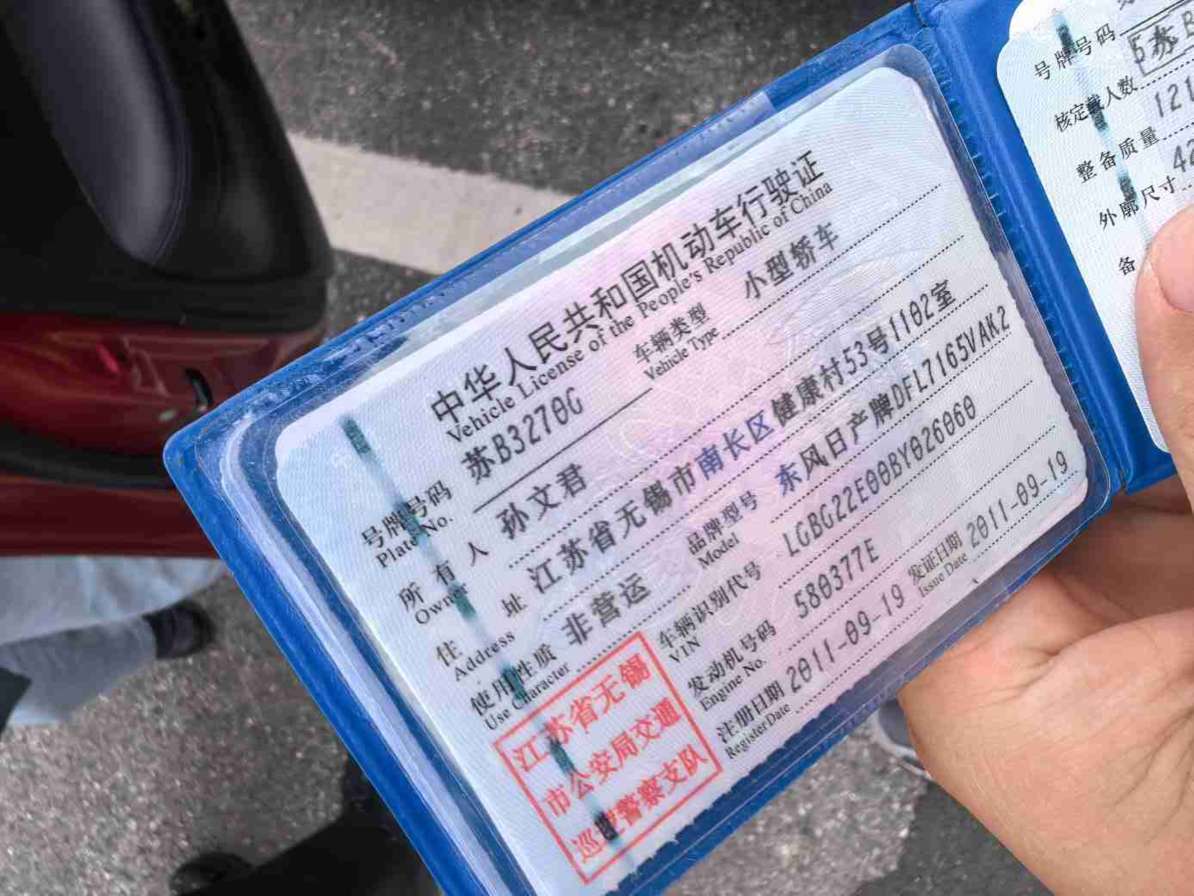 中华人民共和国机动车行驶证
Vehicle License of the People's Republic of China
号牌号码 苏B3270G 车辆类型 小型轿车
Plate No. Vehicle Type
所有人 孙文君
Owner
住址 江苏省无锡市南长区健康村53号1102室
Address
使用性质 非营运 品牌型号 东风日产牌DFL7165VAK2
Use Character Model
车辆识别代号 LGBG22E00BY026060
VIN
发动机号码 580377E
Engine No.
注册日期 2011-09-19 发证日期 2011-09-19
Register Date Issue Date
江苏省无锡
市公安局交通
巡逻警察支队
号牌号码 苏B
核定载人数 5
整备质量 121
外廓尺寸 42
备